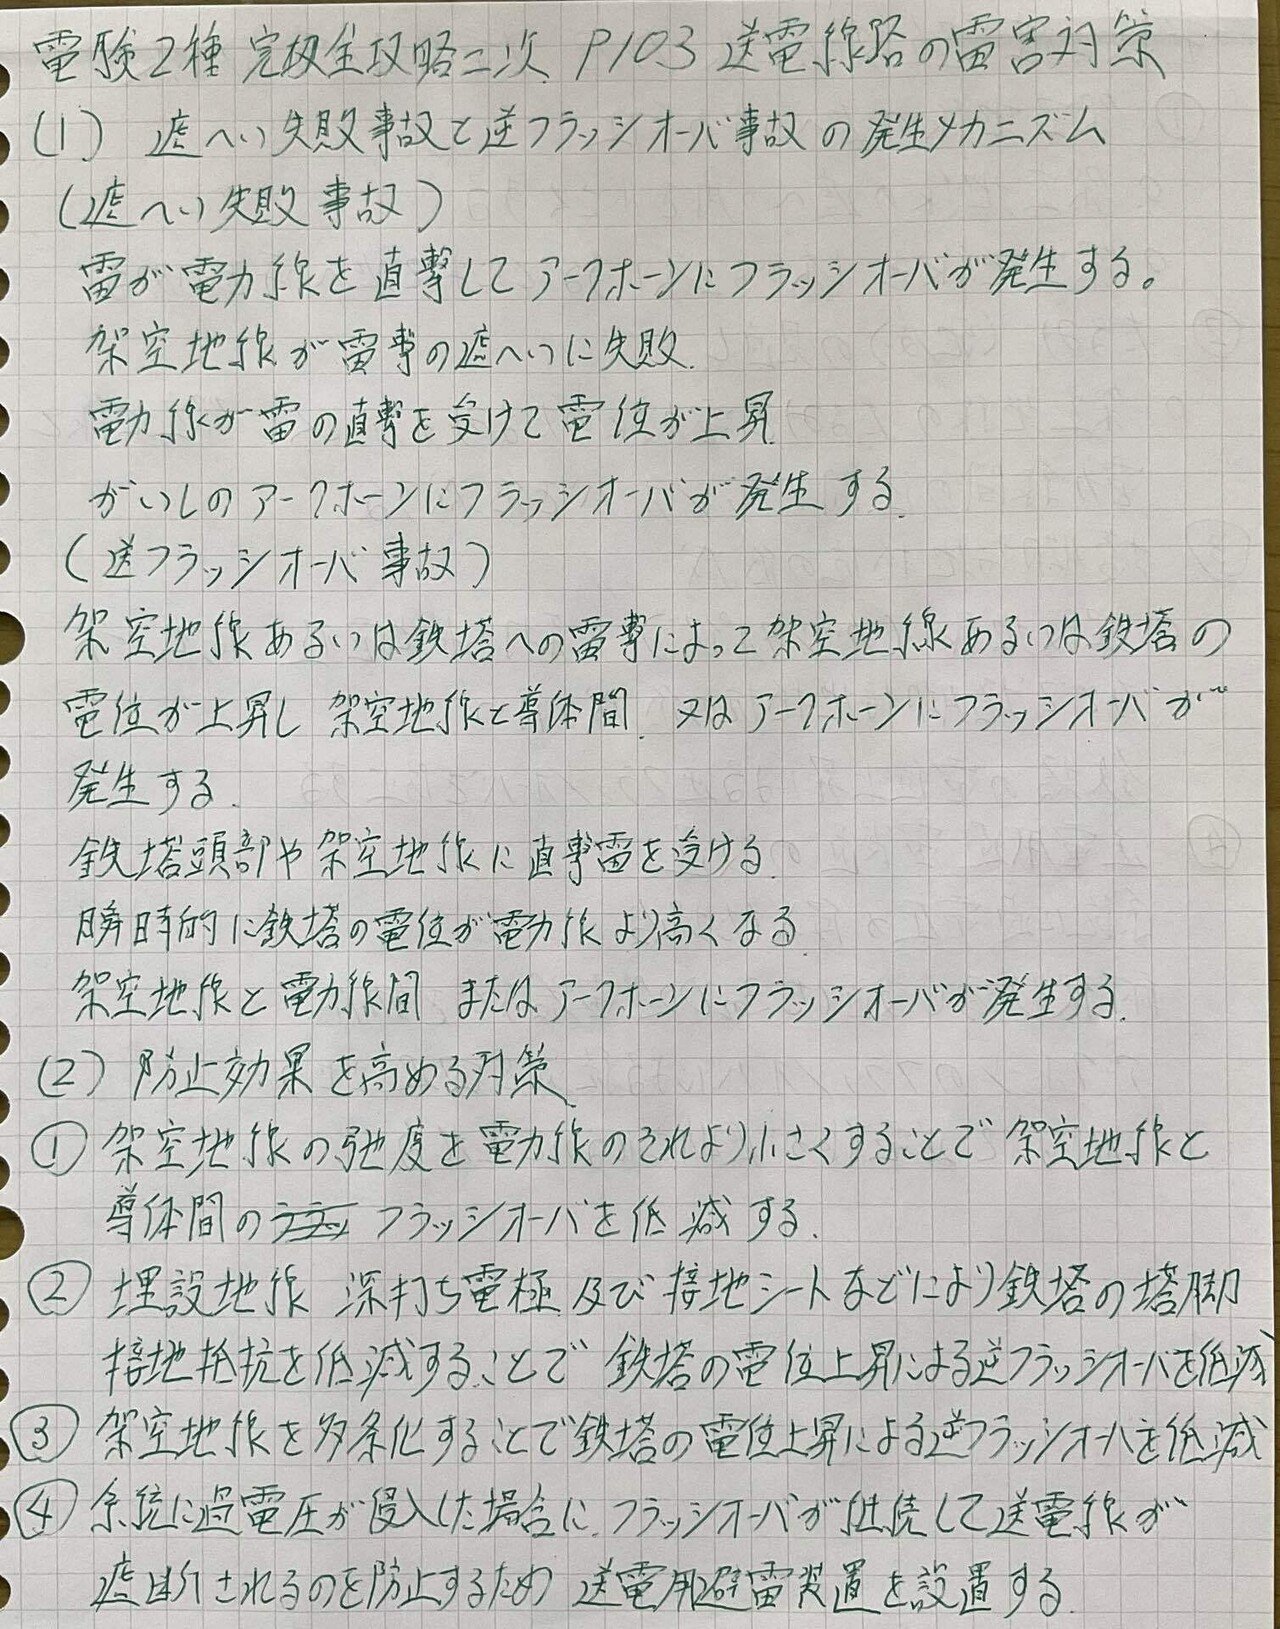 電験2種 完全攻略二次 P103 送電線路の雷害対策
(1) 遮へい失敗事故と逆フラッシオーバ事故の発生メカニズム
(遮へい失敗事故)
雷が電力線を直撃してアークホーンにフラッシオーバが発生する。
架空地線が雷撃の遮へいに失敗.
電力線が雷の直撃を受けて電位が上昇
がいしのアークホーンにフラッシオーバが発生する.
(逆フラッシオーバ事故)
架空地線あるいは鉄塔への雷撃によって架空地線あるいは鉄塔の
電位が上昇し 架空地線と導体間. 又はアークホーンにフラッシオーバが
発生する.
鉄塔頭部や架空地線に直撃雷を受ける.
瞬時的に鉄塔の電位が電力線より高くなる
架空地線と電力線間 またはアークホーンにフラッシオーバが発生する.
(2) 防止効果を高める対策
① 架空地線の弛度を電力線のそれより小さくすることで 架空地線と
導体間の フラッシオーバを低減する.
② 埋設地線 深打ち電極 及び接地シートなどにより鉄塔の塔脚
接地抵抗を低減することで 鉄塔の電位上昇による逆フラッシオーバを低減
③ 架空地線を多条化することで鉄塔の電位上昇による逆フラッシオーバを低減
④ 系統に過電圧が侵入した場合に. フラッシオーバが継続して送電線が
遮断されるのを防止するため 送電用避雷装置を設置する.